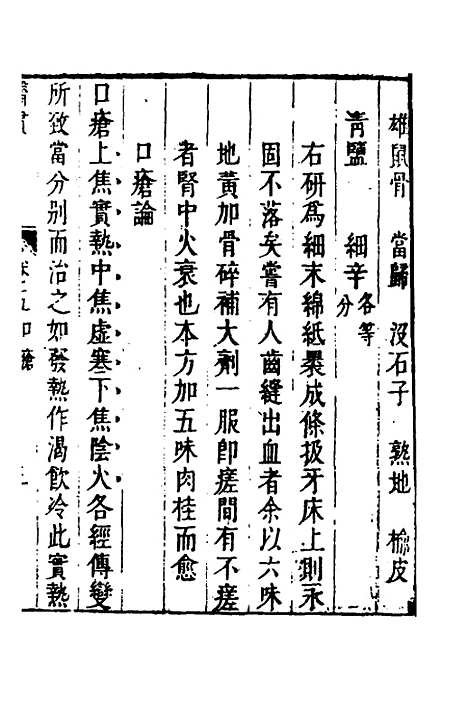 雄鼠骨 當歸 沒石子 熟地 榆皮
青鹽 細辛各等分
右研爲細末綿紙褁成條扱牙床上則永
固不落矣嘗有人齒縫出血者余以六味
地黃加骨碎補大劑一服卽瘥間有不瘥
者腎中火衰也本方加五味肉桂而愈
口瘡論
口瘡上焦實熱中焦虛寒下焦陰火各經傳變
所致當分别而治之如發熱作渴飲冷此實熱